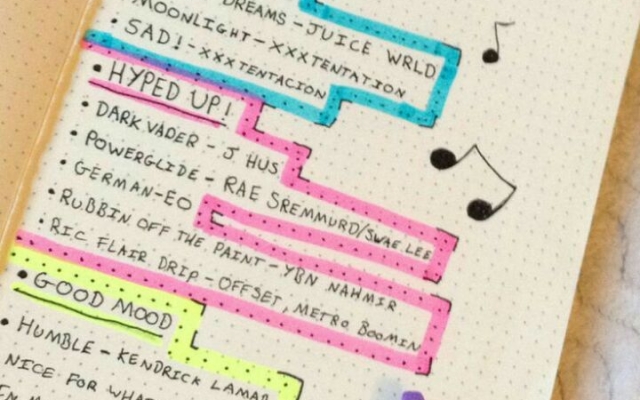 DREAMS - JUICE WRLD
MOONLIGHT - XXXTENTATION
SAD! - XXXTENTACION
• HYPED UP!
• DARK VADER - J HUS
• POWERGLIDE - RAE SREMMURD/SWAE LEE
• GERMAN - EO
• RUBBIN OFF THE PAINT - YBN NAHMIR
• RIC FLAIR DRIP - OFFSET, METRO BOOMIN
• GOOD MOOD
• HUMBLE - KENDRICK LAMAR
NICE FOR WHAT